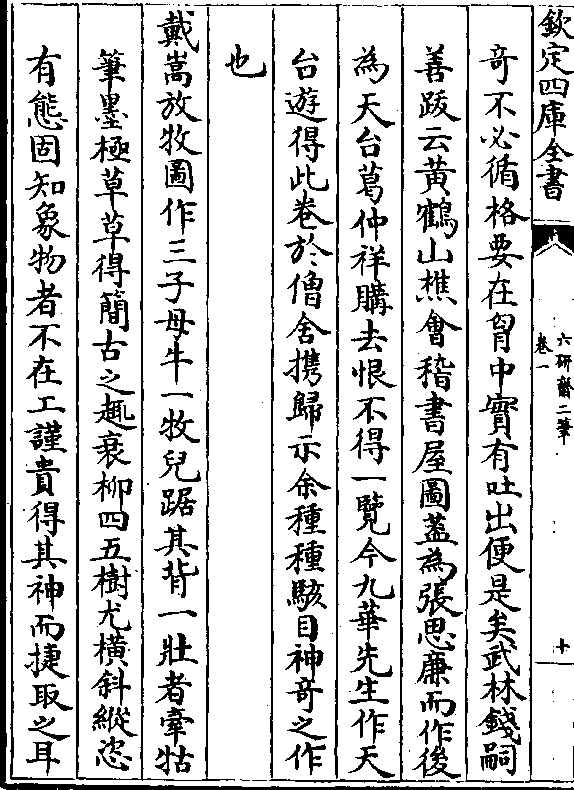 欽定四庫全書
六研齋二筆
卷一
十
奇不必循格要在胷中實有吐出便是矣武林錢嗣
善跋云黃鶴山樵會稽書屋圖葢為張思廉而作後
為天台葛仲祥購去恨不得一覽今九華先生作天
台遊得此卷於僧舍携歸示余種種駭目神奇之作
也
戴嵩放牧圖作三子母牛一牧兒踞其背一壯者牽牯
筆墨極草草得簡古之趣衰柳四五樹尤橫斜縱恣
有態固知象物者不在工謹貴得其神而捷取之耳